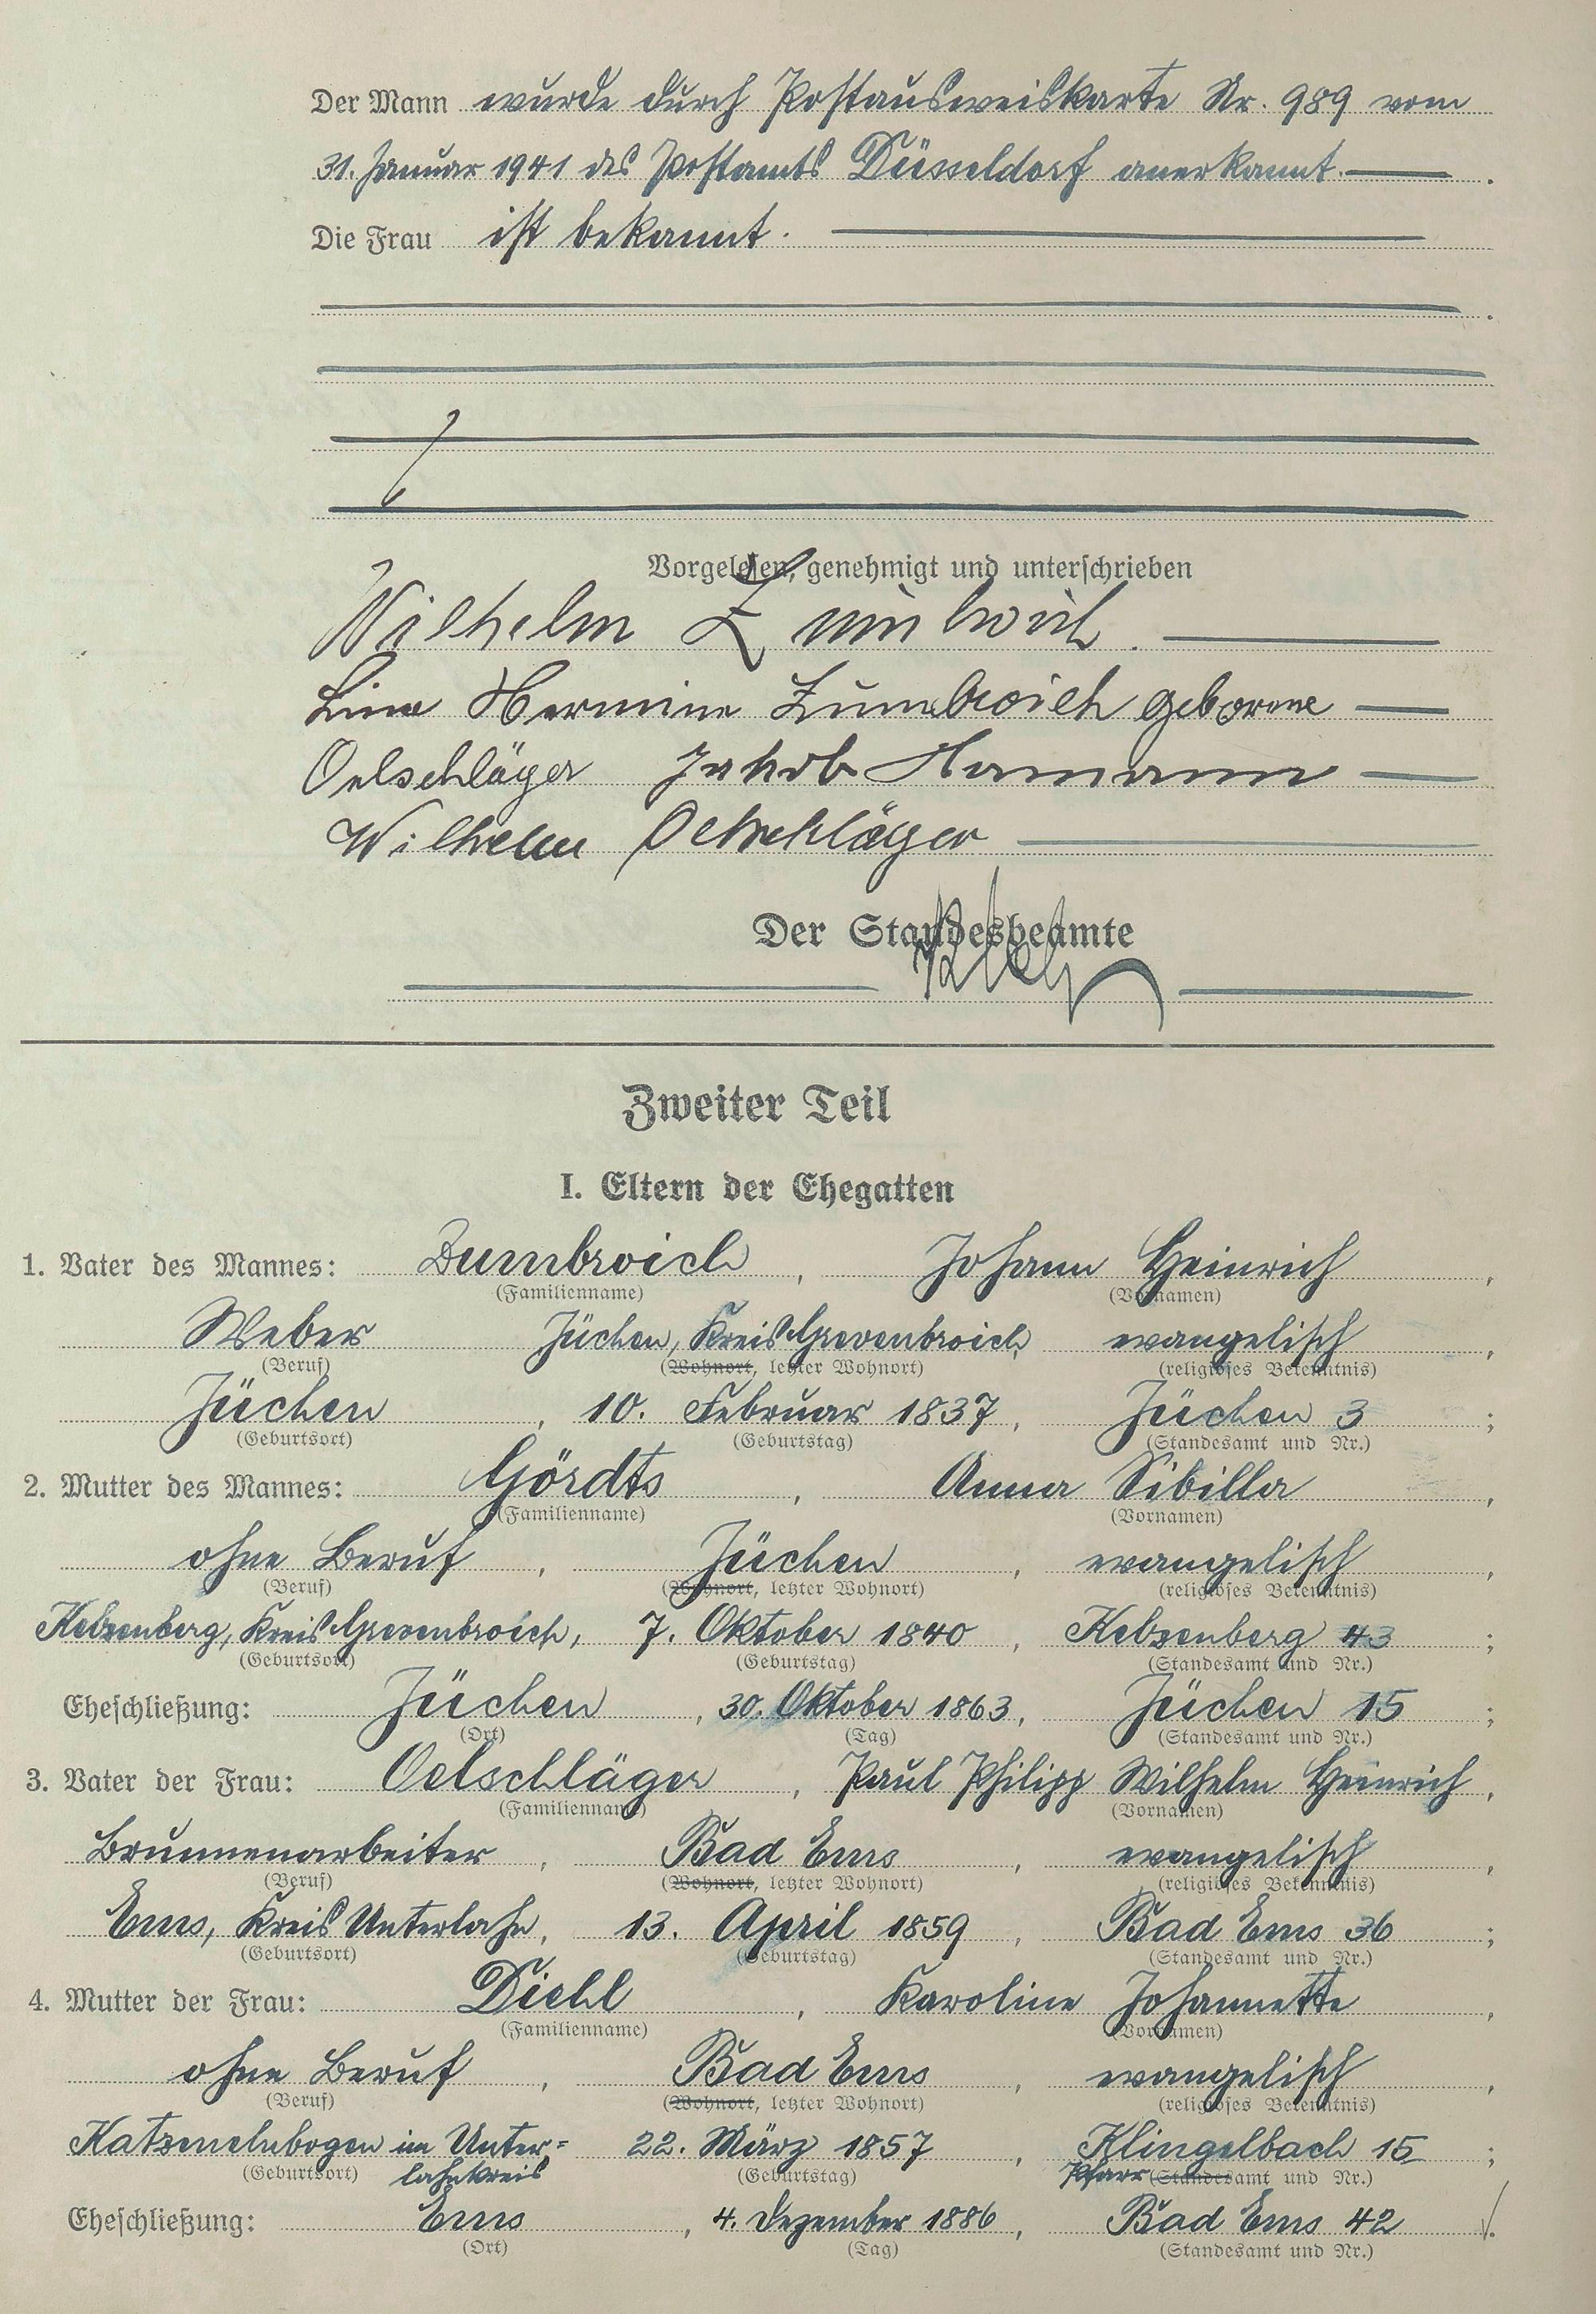 Der Mann wurde durch Postausweiskarte Nr. 989 vom
31. Januar 1941 des Postamts Düsseldorf anerkannt.
Die Frau ist bekannt.
Vorgelesen, genehmigt und unterschrieben
Wilhelm Zumbroich.
Lina Hermine Zumbroich geborene
Oelschläger Jakob Hamann
Wilhelm Oelschläger
Der Standesbeamte
Zweiter Teil
I. Eltern der Ehegatten
1. Vater des Mannes: Zumbroich, Johann Heinrich,
(Familienname) (Vornamen)
Weber Jüchen, Kreis Grevenbroich, evangelisch,
(Beruf) (Wohnort, letzter Wohnort) (religiöses Bekenntnis)
Jüchen, 10. Februar 1837, Jüchen 3;
(Geburtsort) (Geburtstag) (Standesamt und Nr.)
2. Mutter des Mannes: Gördts, Anna Sibilla,
(Familienname) (Vornamen)
ohne Beruf, Jüchen, evangelisch,
(Beruf) (Wohnort, letzter Wohnort) (religiöses Bekenntnis)
Kelzenberg, Kreis Grevenbroich, 7. Oktober 1840, Kelzenberg 43;
(Geburtsort) (Geburtstag) (Standesamt und Nr.)
Eheschließung: Jüchen, 30. Oktober 1863, Jüchen 15;
(Ort) (Tag) (Standesamt und Nr.)
3. Vater der Frau: Oelschläger, Paul Philipp Wilhelm Heinrich,
(Familienname) (Vornamen)
Brunnenarbeiter, Bad Ems, evangelisch,
(Beruf) (Wohnort, letzter Wohnort) (religiöses Bekenntnis)
Ems, Kreis Unterlahn, 13. April 1859, Bad Ems 36;
(Geburtsort) (Geburtstag) (Standesamt und Nr.)
4. Mutter der Frau: Diehl, Karoline Johannette,
(Familienname) (Vornamen)
ohne Beruf, Bad Ems, evangelisch,
(Beruf) (Wohnort, letzter Wohnort) (religiöses Bekenntnis)
Katzenelnbogen im Unter= 22. März 1857, Klingelbach 15;
(Geburtsort) lahnkreis (Geburtstag) Pfarr (Standesamt und Nr.)
Eheschließung: Ems, 4. Dezember 1886, Bad Ems 42.
(Ort) (Tag) (Standesamt und Nr.)